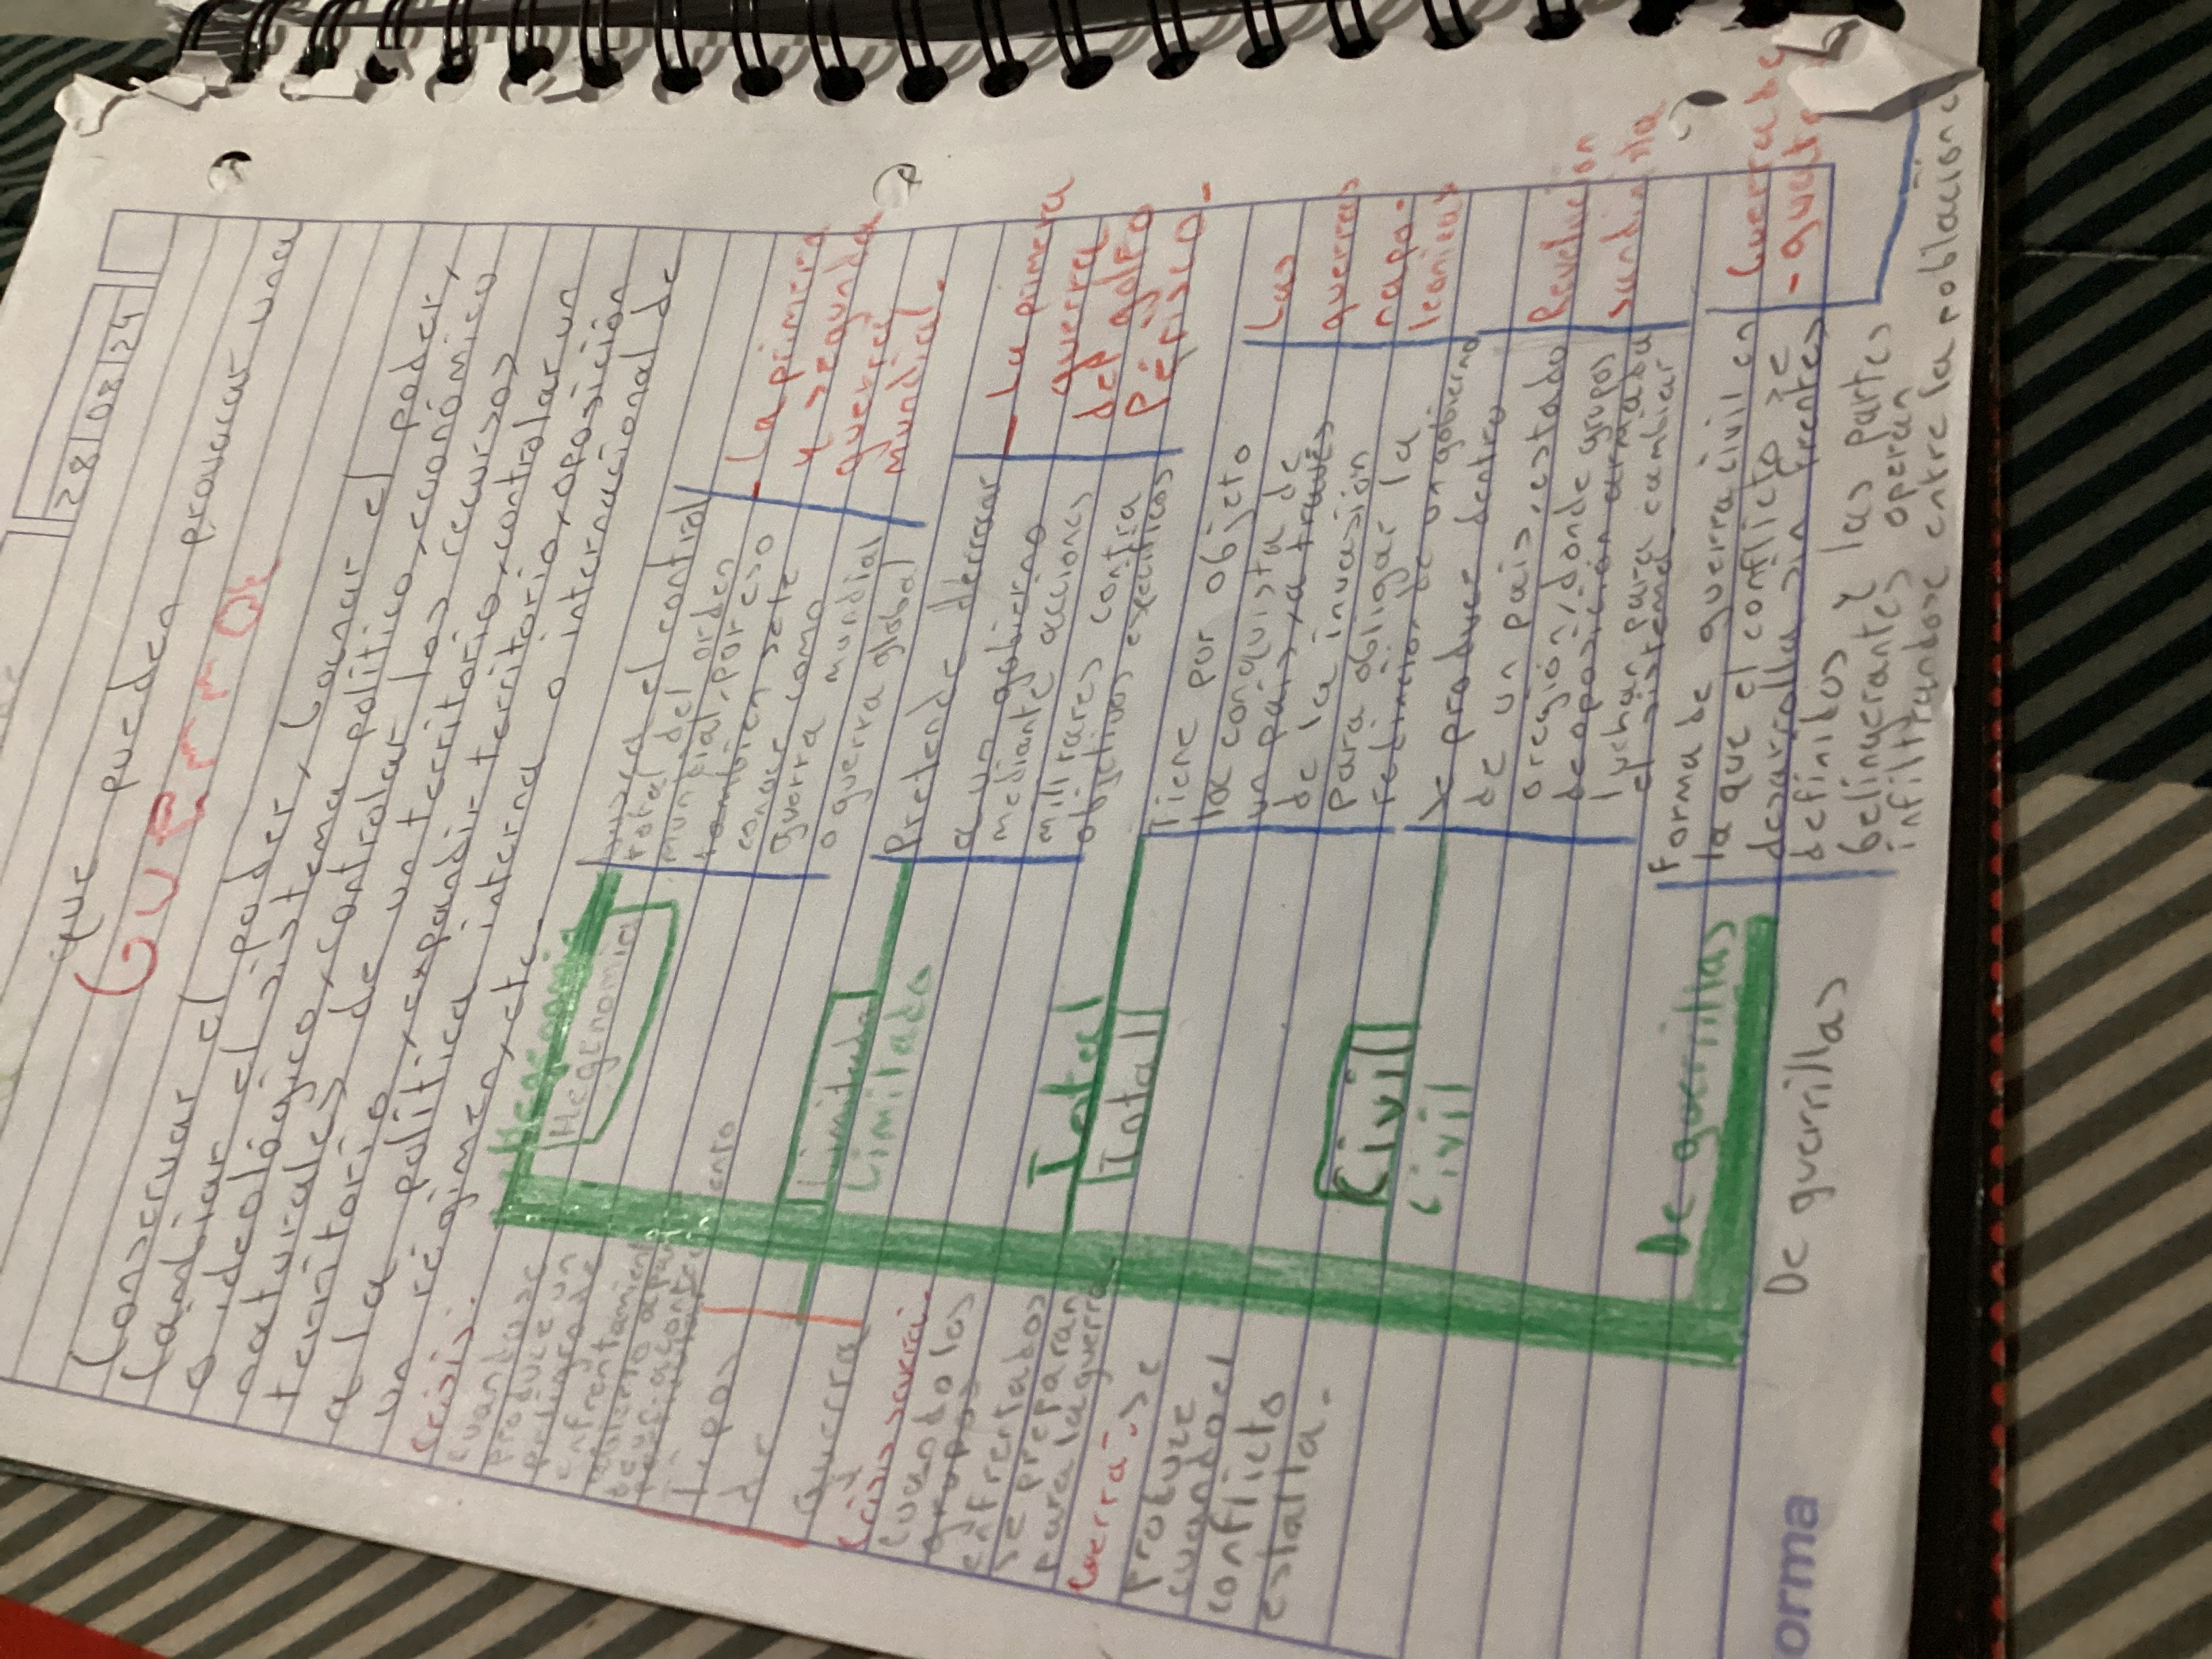 28/08/24
que pueden provocar una
GUERRA
Conservar el poder, Ganar el poder,
Cambiar el sistema politico, economico
o ideológico, controlar los recursos
naturales de un territorio, controlar un
territorio, expandir territorio, oposición
a la politica interna o internacional de
un régimen, etc.
Crisis:
cuando se
produce un
peligro de
enfrentamiento
Tipos
de
guerra
cuando los
grupos
enfrentados
se preparan
para la guerra
Guerra - se
protuce
cuando el
conflicto
estalla.
Hegemonia
Hegenomia
total el control
mundial del orden
mundial, por eso
tambien se le
conoce como
guerra mundial
o guerra global
- La primera
y segunda
guerra
mundial.
Limitada
Limitado
Pretende derrocar
a un gobierno
mediante acciones
militares contra
objetivos especificos
- La pimera
guerra
del golfo
Pérsico-
Total
Total
Tiene por objeto
la conquista de
un país, a traves
de la invasión
para obligar la
redincion de un gobierno
Las
guerras
napo-
leonicas
Civil
Civil
Se produce dentro
de un pais, estado
o región, donde grupos
de oposición armada
luchan para cambiar
el sistema.
Revolución
sandinista
De guerrillas
De guerrillas
Forma de guerra civil en
la que el conflicto se
desarrolla sin frentes
definidos y las partes
belingerantes operan
infiltrandose entre la poblacion
Guerra de
orma